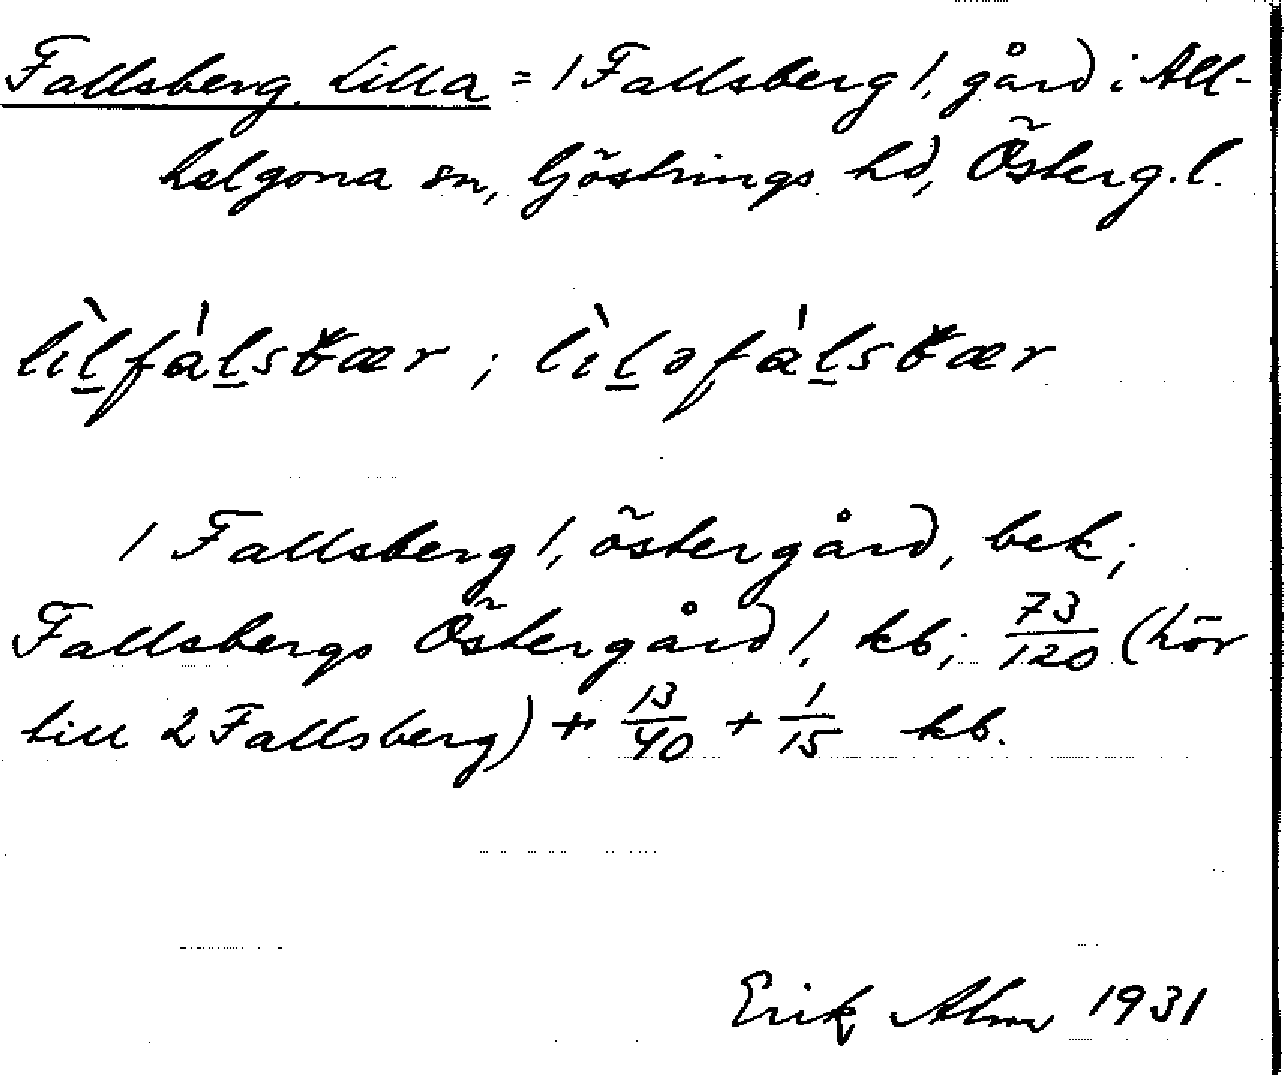 Fallsberg, Lilla = 1 Fallsberg 1, gård i All-
helgona sn, Göstrings hd, Österg.l.
lìl̲fál̲sbær ; lìl̲əfál̲sbær
1 Fallsberg 1, östergård, bek;
Fallsbergs Östergård 1, kb; 73/120 (hör
till 2 Fallsberg) + 13/40 + 1/15 kb.
Erik Abmr 1931